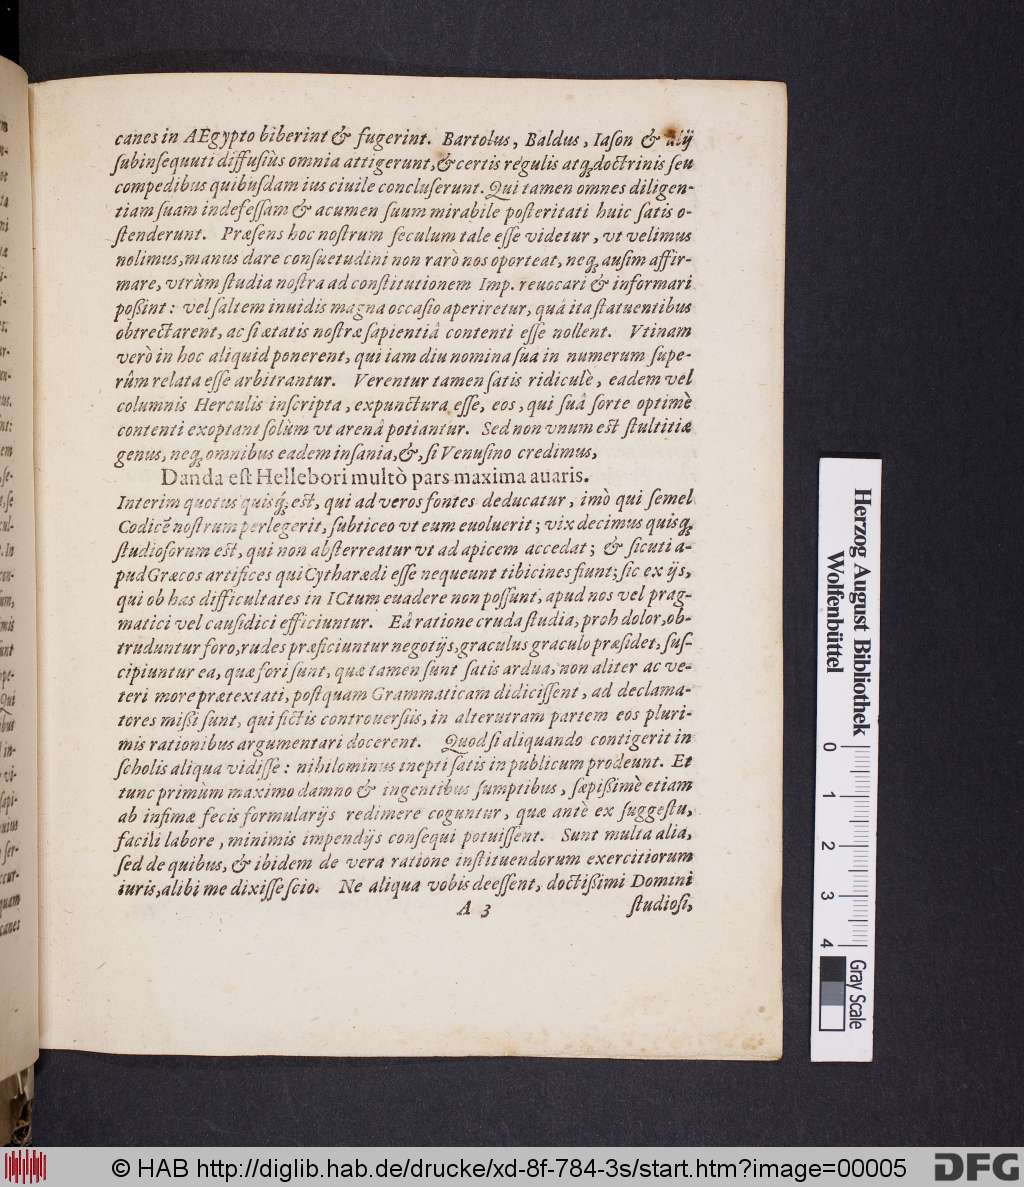 canes in AEgypto biberint & fugerint. Bartolus, Baldus, Iaſon & alij
ſubinſequuti diffuſiùs omnia attigerunt, & certis regulis atq; doctrinis ſeu
compedibus quibuſdam ius ciuile concluſerunt. Qui tamen omnes diligen-
tiam ſuam indefeſſam & acumen ſuum mirabile poſteritati huic ſatis o-
ſtenderunt. Præſens hoc noſtrum ſeculum tale eſſe videtur, vt velimus
nolimus, manus dare conſuetudini non rarò nos oporteat, neq; auſim affir-
mare, vtrùm ſtudia noſtra ad conſtitutionem Imp. reuocari & informari
poßint: vel ſaltem inuidis magna occaſio aperiretur, quâ ita ſtatuentibus
obtrectarent, ac ſi ætatis noſtræ ſapientiâ contenti eſſe nollent. Vtinam
verò in hoc aliquid ponerent, qui iam diu nomina ſua in numerum ſupe-
rûm relata eſſe arbitrantur. Verentur tamen ſatis ridiculè, eadem vel
columnis Herculis inſcripta, expunctura eſſe, eos, qui ſuâ ſorte optimè
contenti exoptant ſolùm vt arenâ potiantur. Sed non vnum eſt ſtultitiæ
genus, neq; omnibus eadem inſania, &, ſi Venuſino credimus,
Danda eſt Hellebori multò pars maxima auaris.
Interim quotus quisq; eſt, qui ad veros fontes deducatur, imò qui ſemel
Codicē noſtrum perlegerit, ſubticeo vt eum euoluerit; vix decimus quisq;
ſtudioſorum eſt, qui non abſterreatur vt ad apicem accedat; & ſicuti a-
pud Græcos artifices qui Cytharœdi eſſe nequeunt tibicines fiunt; ſic ex ijs,
qui ob has difficultates in ICtum euadere non poſſunt, apud nos vel prag-
matici vel cauſidici efficiuntur. Eâ ratione cruda ſtudia, proh dolor, ob-
truduntur foro, rudes præficiuntur negotijs, graculus graculo præſidet, ſuſ-
cipiuntur ea, quæ fori ſunt, quæ tamen ſunt ſatis ardua, non aliter ac ve-
teri more prætextati, poſtquam Grammaticam didiciſſent, ad declama-
tores mißi ſunt, qui fictis controuerſiis, in alterutram partem eos pluri-
mis rationibus argumentari docerent. Quod ſi aliquando contigerit in
ſcholis aliqua vidiſſe: nihilominus inepti ſatis in publicum prodeunt. Et
tunc primùm maximo damno & ingentibus ſumptibus, ſæpißimè etiam
ab infimæ fecis formularijs redimere coguntur, quæ antè ex ſuggeſtu,
facili labore, minimis impendijs conſequi potuiſſent. Sunt multa alia,
ſed de quibus, & ibidem de vera ratione inſtituendorum exercitiorum
iuris, alibi me dixiſſe ſcio. Ne aliqua vobis deeſſent, doctißimi Domini
A 3 ſtudioſi,
Herzog August Bibliothek
Wolfenbüttel
0 1 2 3 4
Gray Scale
© HAB http://diglib.hab.de/drucke/xd-8f-784-3s/start.htm?image=00005
DFG